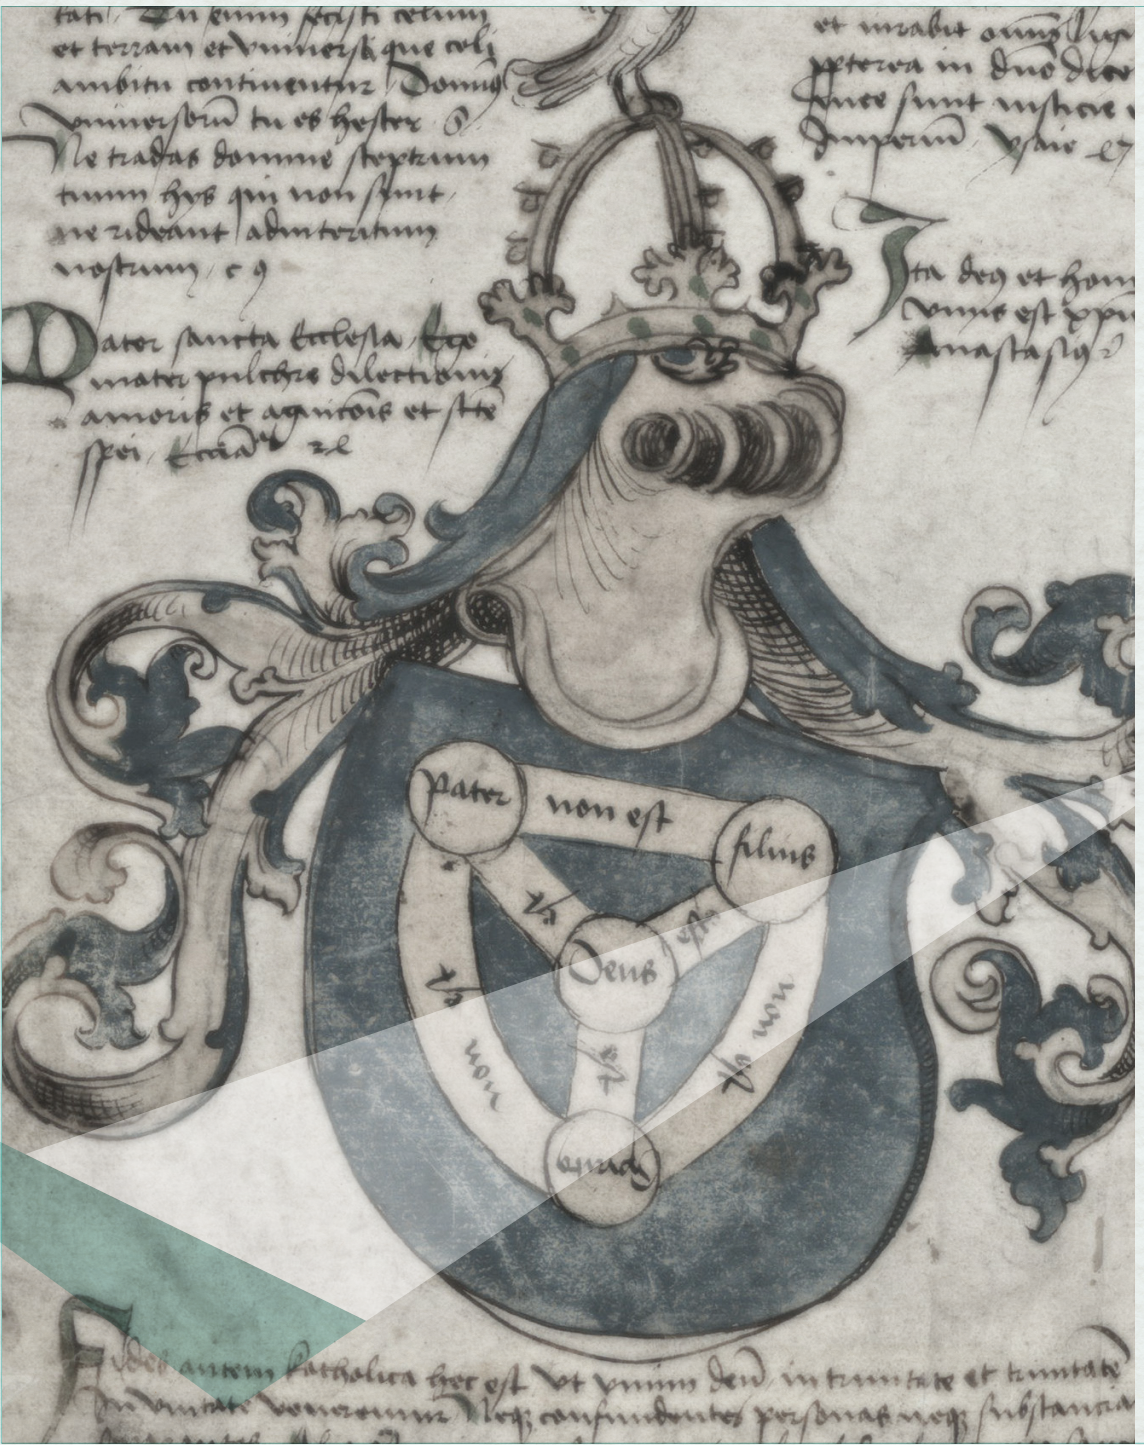 tati. Tu enim fecisti celum
et terram et vniuersa que celi
ambitu continentur Domin9
vniuersorū tu es hester
Ne tradas domine sceptrum
tuum hys qui non sunt
ne rideant ad interitum
nostrum
Mater sancta Ecclesia Ego
mater pulchre dilectionis
amoris et agnicōis et scē
spei
et iurabit
ppterea in dnō dicet
mee sunt iusticie
Imperiū ysaie
Ita deq et hom
vnus est xpū
Anastasiq
pater non est filius
est est
Deus
non est
non est
est
Fides autem katholica hec est Vt vnum deū in trinitate et trinitatē
In vnitate veneremur Neqz confundentes personas neqz substancia